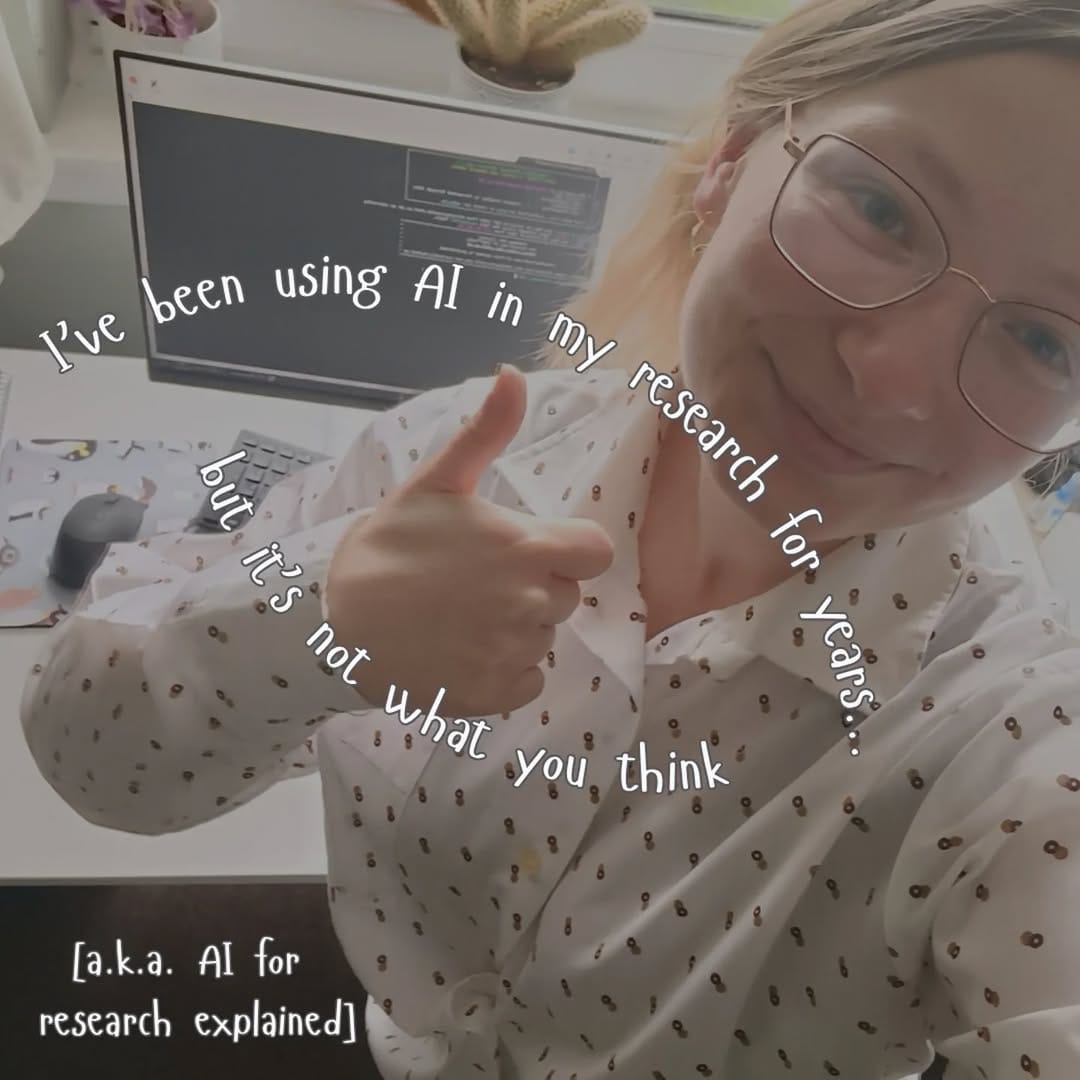 I've been using AI in my research for years...
but it's not what you think
[a.k.a. AI for
research explained]